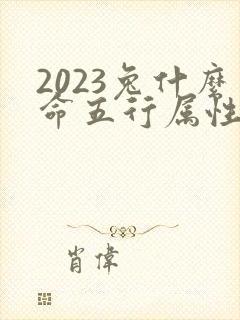 2023兔什麼
命五行属性
肖偉